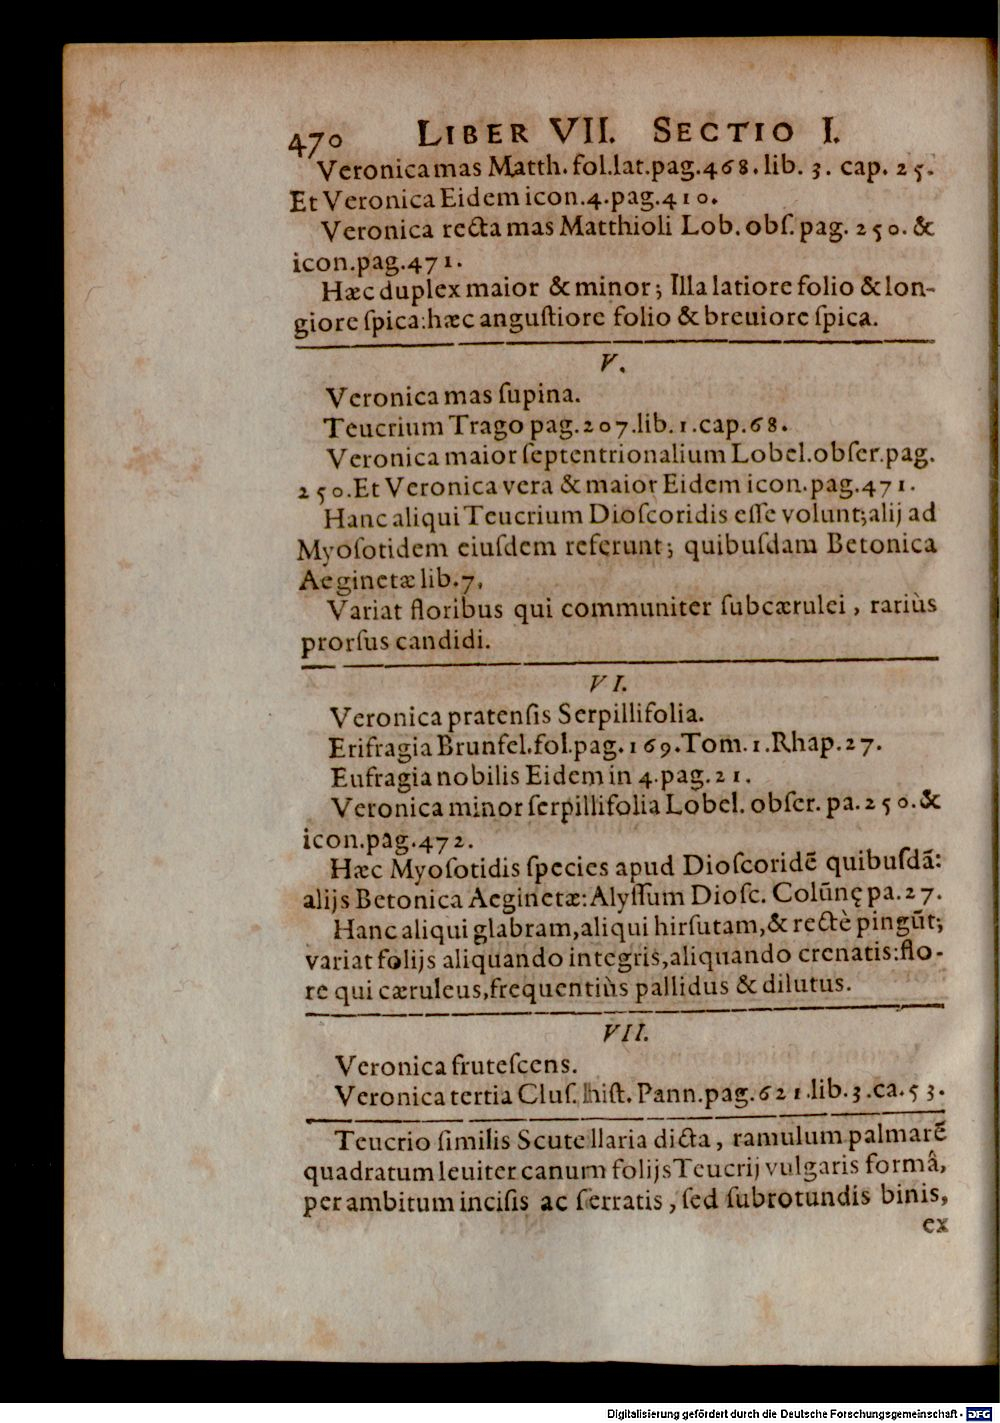 470 LIBER VII. SECTIO I.
Veronica mas Matth. fol. lat. pag. 468. lib. 3. cap. 25.
Et Veronica Eidem icon. 4. pag. 410.
Veronica recta mas Matthioli Lob. obſ. pag. 250. &
icon. pag. 471.
Hæc duplex maior & minor; Illa latiore folio & lon-
giore ſpica: hæc anguſtiore folio & breuiore ſpica.
V.
Veronica mas ſupina.
Teucrium Trago pag. 207. lib. 1. cap. 68.
Veronica maior ſeptentrionalium Lobel. obſer. pag.
250. Et Veronica vera & maior Eidem icon. pag. 471.
Hanc aliqui Teucrium Dioſcoridis eſſe volunt; alij ad
Myoſotidem eiuſdem referunt; quibuſdam Betonica
Aeginetæ lib. 7.
Variat floribus qui communiter ſubcærulei, rariùs
prorſus candidi.
VI.
Veronica pratenſis Serpillifolia.
Erifragia Brunfel. fol. pag. 169. Tom. 1. Rhap. 27.
Eufragia nobilis Eidem in 4. pag. 21.
Veronica minor ſerpillifolia Lobel. obſer. pa. 250. &
icon. pag. 472.
Hæc Myoſotidis ſpecies apud Dioſcoridē quibuſdā:
alijs Betonica Aeginetæ: Alyſſum Dioſc. Colūnę pa. 27.
Hanc aliqui glabram, aliqui hirſutam, & rectè pingūt;
variat folijs aliquando integris, aliquando crenatis: flo-
re qui cæruleus, frequentiùs pallidus & dilutus.
VII.
Veronica fruteſcens.
Veronica tertia Cluſ. hiſt. Pann. pag. 621. lib. 3. ca. 53.
Teucrio ſimilis Scutellaria dicta, ramulum palmarē
quadratum leuiter canum folijs Teucrij vulgaris formâ,
per ambitum inciſis ac ſerratis, ſed ſubrotundis binis,
ex
Digitalisierung gefördert durch die Deutsche Forschungsgemeinschaft - DFG